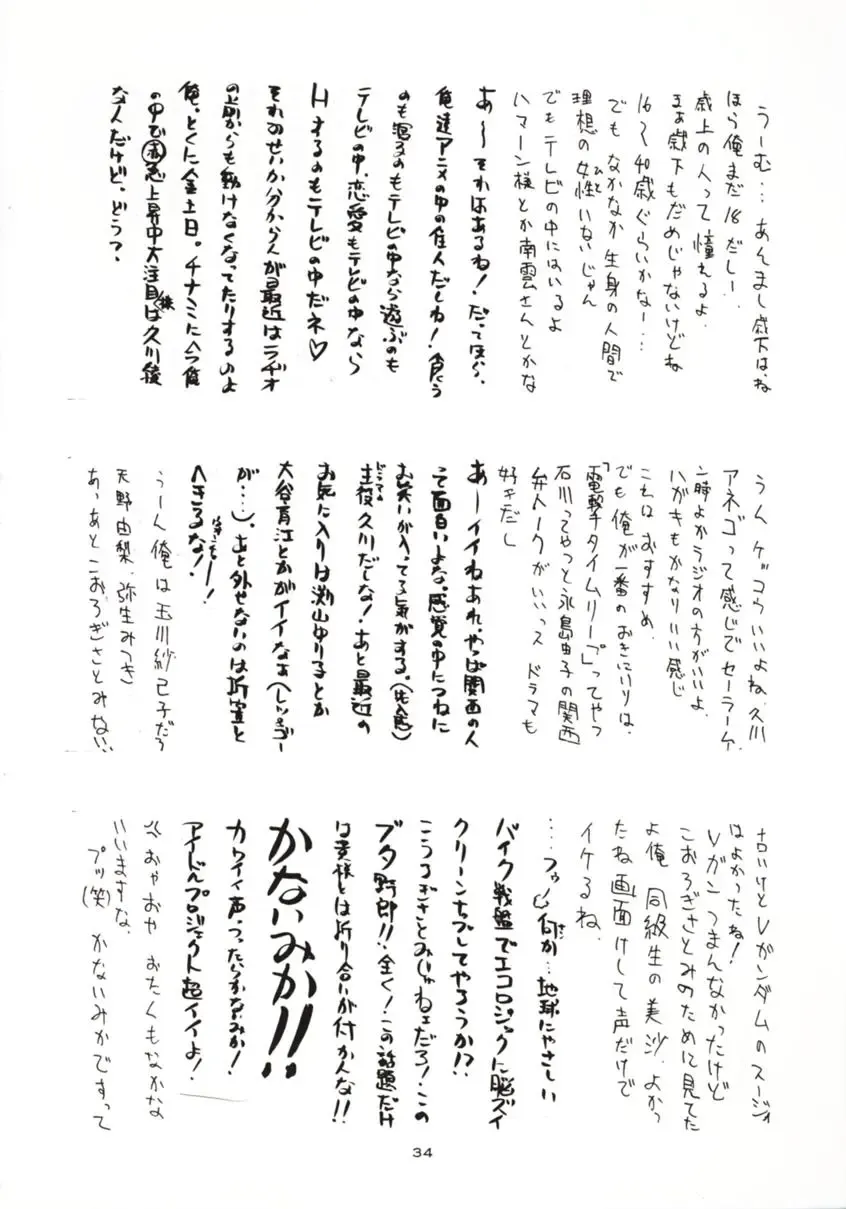 うーむ…あんまし歳下は、ね
ほら俺まだ18だしー。
歳上の人って憧れるよ。
まぁ歳下もだめじゃないけどね
16〜40歳ぐらいかなー…。
でもなかなか生身の人間で
理想の女性ひといないじゃん
でもテレビの中にはいるよ
ハマーン様とか南雲さんとかな
あ〜それはあるね!だってほら、
俺達アニメの中の住人だしね!食う
のも寝るのもテレビの中なら遊ぶのも
テレビの中、恋愛もテレビの中なら
Hするのもテレビの中だネ♡
それのせいか分からんが最近はラヂオ
の前からも動けなくなってたりするのよ
俺。とくに金土日。チナミに今俺
の中で赤丸急上昇中大注目株は久川綾
な人だけど。どう?
うん ゲッコウいいよね。久川
アネゴって感じでセーラーの
時よかラジオの方がいいよ。
ハガキもかなりいい感じ
これはおすすめ。
でも俺が一番のおきにいりは、
「電撃チタイムリープ」ってやつ
石川ってやつと永島由子の関西
弁トークがいいっス ドラマも
好きだし
あーイイねあれ。やっぱ関西の人
って面白いよな。感覚の中につねに
お笑いが入ってる気がする。(先入感)
主役久川だしな!あと最近の
お気に入りは渕崎ゆり子とか
大谷育江とかがイイなぁ(レッツゴー
が…)。あと外せないのは折笠と
へきるな!
うーん 俺は玉川紗己子だろ
天野由梨、弥生みつき
あっあとこおろぎさとみない、
古いけどVガンダムのスージィ
はよかったね!
Vガンつまんなかったけど
こおろぎさとみのために見てた
よ俺 同級生の美沙、よかっ
たね 画面けして声だけで
イケるね。
…フゥ〜何か…地球にやさしい
バイク戦艦でエコロジックに脳ズイ
クリーンナップしてやろうか!?
こうろぎさとみじゃねェだろ!この
ブタ野郎!!全く!この話題だけ
は貴様とは折り合いが付かんな!!
かないみか!!
カワイイ声つったらかないみか!
アイドルプロジェクト超イイよ!
おやおや おたくもなかな
いいますな、
プッ(笑)かないみかですって
34